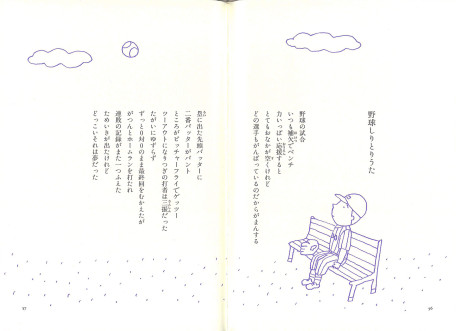 野球しりとりうた
野球の試合
いつも補欠でベンチ
力いっぱい応援すると
とてもおなかが空くけれど
どの選手もがんばっているのだからがまんする
塁に出た先頭バッターに
二番バッターがバント
ところがピッチャーフライでゲッツー
ツーアウトになりつぎの打者は三振だった
たがいにゆずらず
ずっと0対0のまま最終回をむかえたが
がつんとホームランを打たれ
連敗の記録がまた一つふえた
ためいきが出たけれど
どっこいそれは夢だった